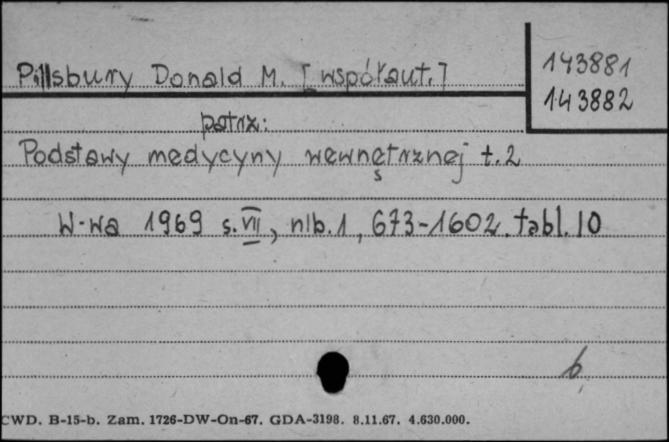 Pillsbury Donald M. [współaut.]
143881
143882
patrz:
Podstawy medycyny wewnętrznej t. 2
W-wa 1969 s. VII, nlb. 1, 673-1602. tabl. 10
b.
CWD. B-15-b. Zam. 1726-DW-On-67. GDA-3198. 8.11.67. 4.630.000.